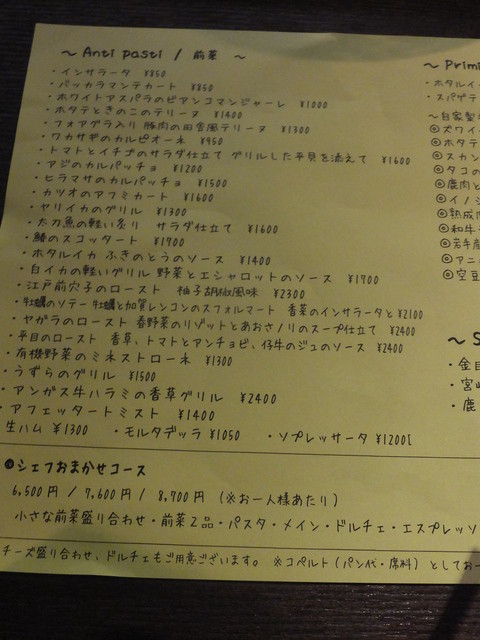 〜 Anti pasti / 前菜 〜
・インサラータ ¥850
・バッカラマンテカート ¥850
・ホワイトアスパラのビアンコマンジャーレ ¥1000
・ホタテときのこのテリーヌ ¥1400
・フォアグラ入り 豚肉の田舎風テリーヌ ¥1300
・ワカサギのカルピオーネ ¥950
・トマトとイチゴのサラダ仕立て グリルした平貝を添えて ¥1600
・アジのカルパッチョ ¥1200
・ヒラマサのカルパッチョ ¥1500
・カツオのアフミカート ¥1600
・ヤリイカのグリル ¥1300
・太刀魚の軽い炙り サラダ仕立て ¥1600
・鰆のスコッタート ¥1700
・ホタルイカ ふきのとうのソース ¥1400
・白イカの軽いグリル 野菜とエシャロットのソース ¥1700
・江戸前穴子のロースト 柚子胡椒風味 ¥2300
・牡蠣のソテー 牡蠣と加賀レンコンのスフォルマート 香菜のインサラータと ¥2100
・ヤガラのロースト 春野菜のリゾットとあおさノリのスープ仕立て ¥2400
・平目のロースト 香草、トマトとアンチョビ、仔牛のジュのソース ¥2400
・有機野菜のミネストローネ ¥1300
・うずらのグリル ¥1500
・アンガス牛ハラミの香草グリル ¥2400
・アフェッタートミスト ¥1400
生ハム ¥1300 ・モルタデッラ ¥1050 ・ソプレッサータ ¥1200
シェフおまかせコース
6,500円 / 7,600円 / 8,700円 (※お一人様あたり)
小さな前菜盛り合わせ・前菜2品・パスタ・メイン・ドルチェ・エスプレッソ
チーズ盛り合わせ、ドルチェもご用意ございます。 ※コペルト(パン代・席料)としてお一
〜 Primi
・ホタルイ
・スパゲテ
〜自家製
◎ズワイ
◎ホタテ
◎スカン
◎タコの
◎鹿肉と
◎イノシ
◎熟成肉
◎和牛
◎岩手産
◎アニ
◎空豆
〜 S
・金目
・宮崎
・鹿